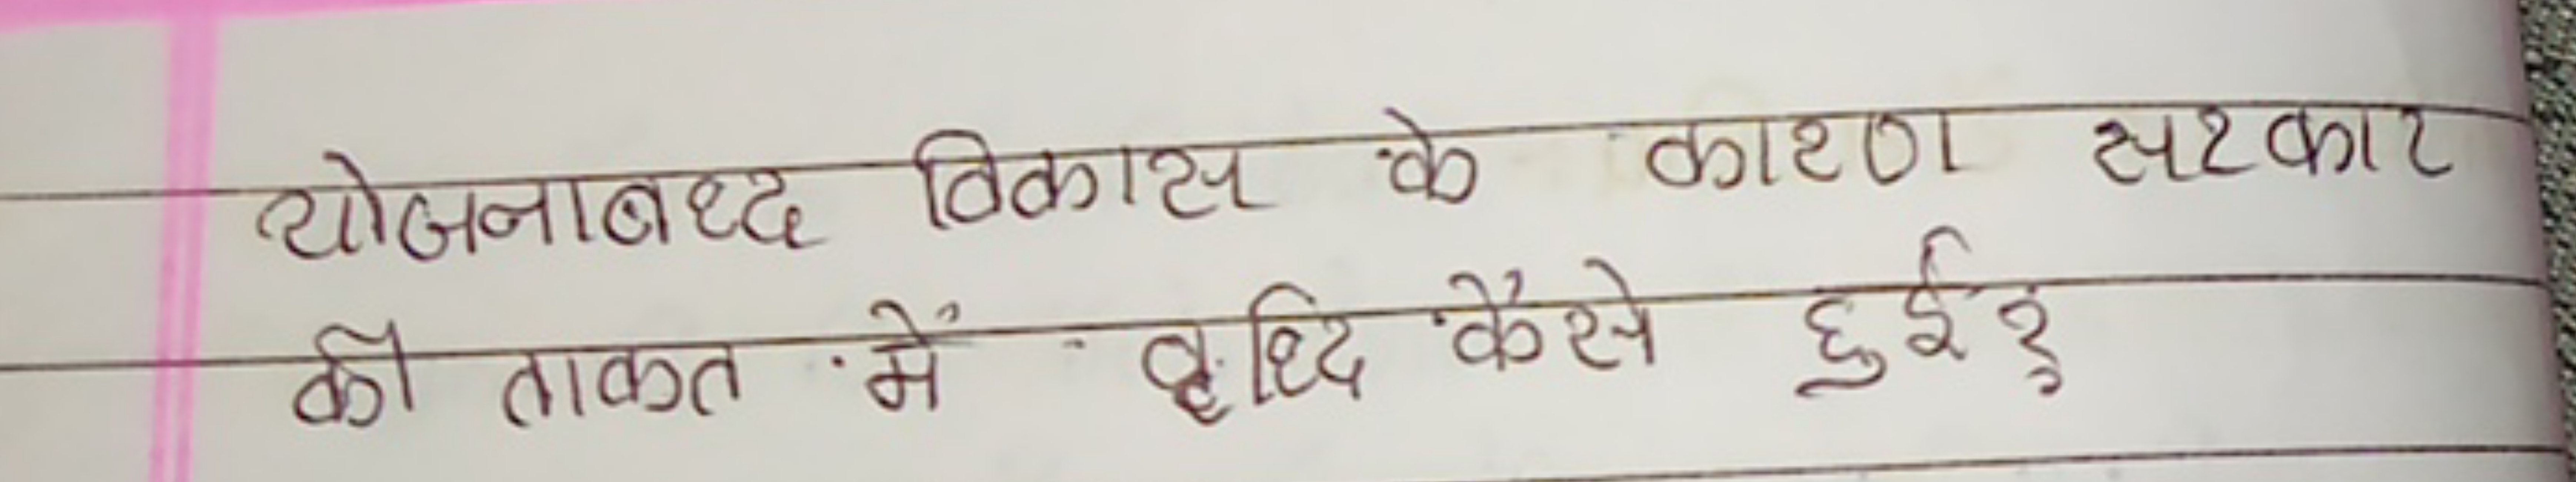 योजनाबध्द विकास के कारण सरकार
की ताकत में वृध्दि कैसे हुई?